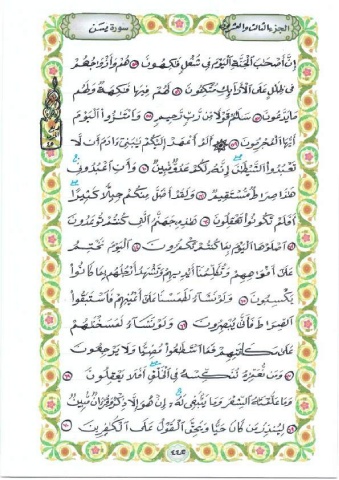 الجزء الثالث والعشرون
سورة يسٓ
إِنَّ أَصْحَٰبَ الْجَنَّةِ الْيَوْمَ فِى شُغُلٍ فَٰكِهُونَ هُمْ وَأَزْوَٰجُهُمْ
فِى ظِلَٰلٍ عَلَى الْأَرَآئِكِ مُتَّكِـُٔونَ لَهُمْ فِيهَا فَٰكِهَةٌ وَلَهُم
مَّا يَدَّعُونَ سَلَٰمٌ قَوْلًا مِّن رَّبٍّ رَّحِيمٍ وَامْتَٰزُوا الْيَوْمَ
أَيُّهَا الْمُجْرِمُونَ أَلَمْ أَعْهَدْ إِلَيْكُمْ يَٰبَنِىٓ ءَادَمَ أَن لَّا
تَعْبُدُوا الشَّيْطَٰنَ إِنَّهُ لَكُمْ عَدُوٌّ مُّبِينٌ وَأَنِ اعْبُدُونِى
هَٰذَا صِرَٰطٌ مُّسْتَقِيمٌ وَلَقَدْ أَضَلَّ مِنكُمْ جِبِلًّا كَثِيرًا
أَفَلَمْ تَكُونُوا تَعْقِلُونَ هَٰذِهِ جَهَنَّمُ الَّتِى كُنتُمْ تُوعَدُونَ
اصْلَوْهَا الْيَوْمَ بِمَا كُنتُمْ تَكْفُرُونَ الْيَوْمَ نَخْتِمُ
عَلَىٰٓ أَفْوَٰهِهِمْ وَتُكَلِّمُنَآ أَيْدِيهِمْ وَتَشْهَدُ أَرْجُلُهُم بِمَا كَانُوا
يَكْسِبُونَ وَلَوْ نَشَآءُ لَطَمَسْنَا عَلَىٰٓ أَعْيُنِهِمْ فَاسْتَبَقُوا
الصِّرَٰطَ فَأَنَّىٰ يُبْصِرُونَ وَلَوْ نَشَآءُ لَمَسَخْنَٰهُمْ
عَلَىٰ مَكَانَتِهِمْ فَمَا اسْتَطَٰعُوا مُضِيًّا وَلَا يَرْجِعُونَ
وَمَن نُّعَمِّرْهُ نُنَكِّسْهُ فِى الْخَلْقِ أَفَلَا يَعْقِلُونَ
وَمَا عَلَّمْنَٰهُ الشِّعْرَ وَمَا يَنۢبَغِى لَهُ إِنْ هُوَ إِلَّا ذِكْرٌ وَقُرْءَانٌ مُّبِينٌ
لِّيُنذِرَ مَن كَانَ حَيًّا وَيَحِقَّ الْقَوْلُ عَلَى الْكَٰفِرِينَ
٤٤٤